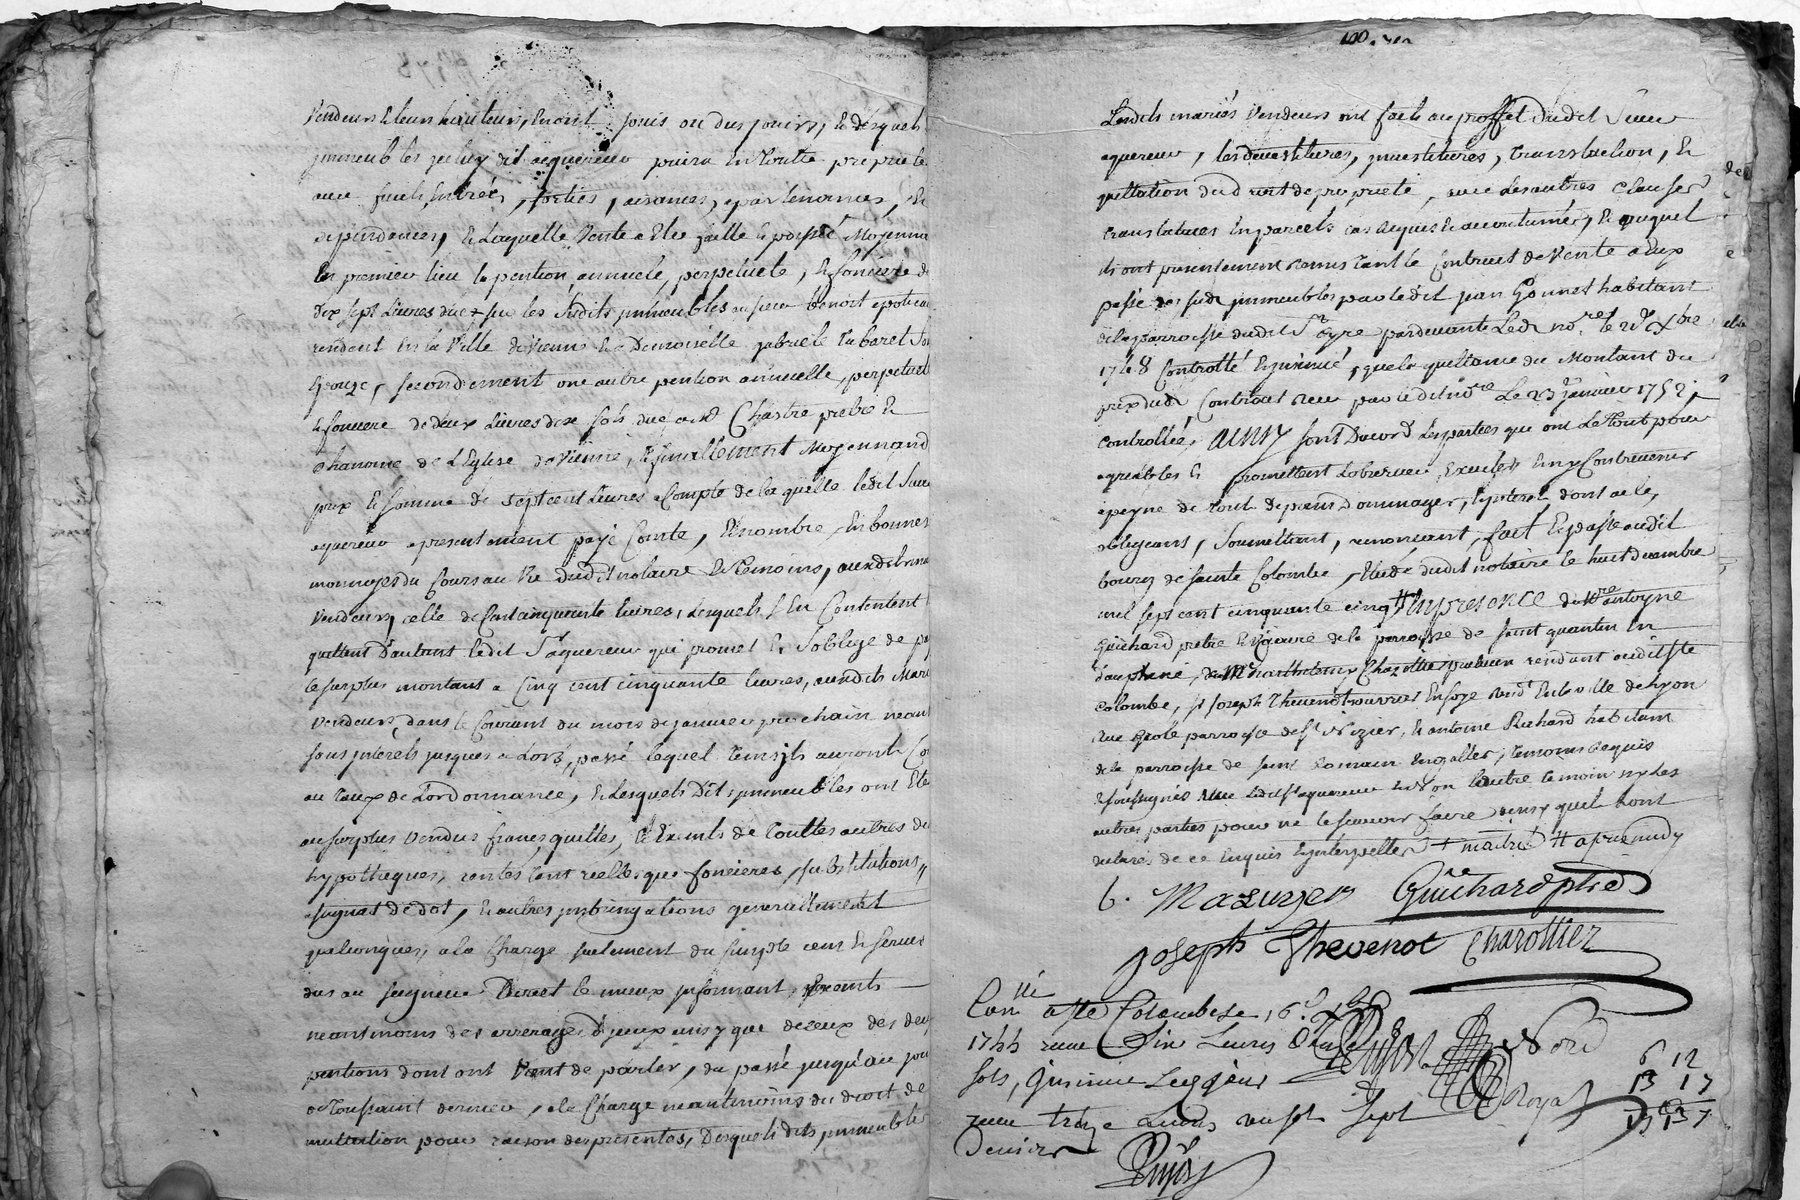 Vendeurs et leurs hauteurs, en ont jouis ou dus jouirs, et desquels
jmmeubles jceluy dit acquereur joüira en toutte propriete
avec fonds, entrées, sorties, aisances, apartenances, et
dependances, et laquelle vente a ete faitte et passée moyennant
En premier lieu la pention, annuele, perpetuele, et fonciere de
dix sept livres düe sur les susdits jmmeubles au sieur benoist
rendant en la ville de vienne et a Demoiselle gabriele tabaret
George, secondement une autre pention annuelle, perpetuele
et fonciere de deux livres dix sols due a Mr Chastre pretre et
chanoine de l'Eglise de vienne, et finallement moyennand
prix et somme de sept cent livres a compte de laquelle ledit sieur
aquereur a presentement payé Conte, et nombré, en bonnes
monnoyes du cours au vû dudit notaire et temoins, auxdits mariés
vendeurs, celle de cent cinquante livres, desquels s'en contentent
quittent d'autant ledit Sr aquereur qui promet et s'oblige de payer
le surplus montant a cinq cent cinquante livres, auxdits mariés
vendeurs dans le courant du mois de janvier prochain neant
sous jnterets jusques a lors, passé lequel tems jls auront cours
au taux de l'ordonnance, et desquels dits jmmeubles ont ete
au surplus vendus francs quittes, et Exemts de touttes autres dettes
hypotheques, rentes tant réelles que foncieres, substitutions,
assignat de dot, et autres jmbringations generallement
quelconques, a la charge seulement du simple cens et servis
dus au seigneur direct le mieux jnformant, Exemts
neantmoins des arrerages d'jceux ainsy que de ceux des deux
pentions dont ont vient de parler, du passé jusqu'au jour
de toussaint dernier, a la charge neantmoins du droit de
muttation pour raison des presentes, desquels dits jmmeubles
Lesdits mariés vendeurs ont faits au proffit dudit sieur
aquereur, les devestitures, jnvestitures, translaction, et
quittation du droit de propriete, avec les autres clauses
translatives en pareils cas requis et accoutumés, et auquel
ils ont presentement remis tant le contract de vente a eux
passé des susd. jmmeubles par ledit jean Gonnet habitant
de la parroisse dudit St Cyre pardevant led. nore le 20 Xbre
1748 Controllé et jnsinué, que la quittance du montant du
prix dud. Contract recu par ledit nore le 23 janvier 1752,
controllée, ainsy sont d'acord les parties qui ont le tout pour
agreables et promettent l'observer, executer et n'y contrevenir
a peyne de tout depens dommages, et jnterets dont acte,
obligeans, soumettant, renonceant, fait et passé audit
bourg de sainte Colombe, etude dudit notaire le huit decembre
mil sept cent cinquante cinq # En presence de mre antoyne
Guichard pretre et vicaire de la parroisse de saint quantin en
dauphiné, de Mr barthelemy Charottier praticien rendant audit ste
colombe, sr joseph thevenot ouvrier en soye rendt en la ville de lyon
rue Grole parroisse de st Nizier, et antoine Richard habitant
de la parroisse de saint Romain en gallet, temoins requis
et soussignés avec ledit sr aquereur et non l'autre temoin ny les
autres parties pour ne le scavoir faire ainsy quil l'ont
declarés de ce enquis et jnterpellés + maitre # apres midy
6. Mazuyer Guichard ptre
joseph thevenot Charottier
Con.llé a Ste Colombe le 16e Xbre
1755 recu Six Livres Douze
sols, jnsinue Led jour
recu treize Livres un sol Sept
deniers
Pujos
6 12
13 1 7
19 13 7